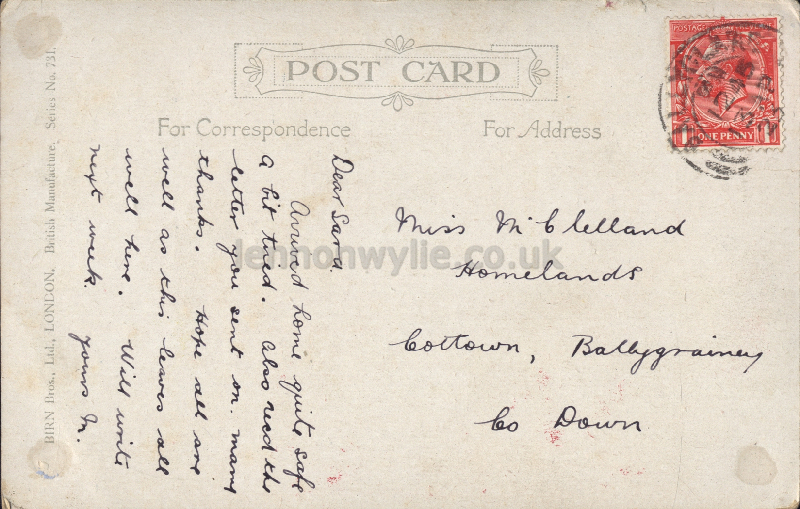 POST CARD
For Correspondence
For Address
Dear Sara.
Arrived home quite safe
a bit tired. Also recd the
letter you sent on. Many
thanks. Hope all are
well as this leaves all
well here. Will write
next week. Yours M.
Miss McClelland
Homelands
Cottown, Ballygrainey
Co Down
BIRN Bros., Ltd., LONDON. British Manufacture. Series No. 731.
POSTAGE REVENUE
1 ONE PENNY 1
lennonwylie.co.uk